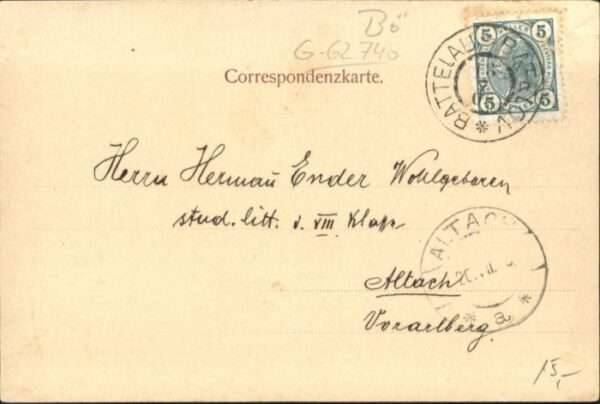 Bö
G-62740
Correspondenzkarte.
5 5
5 5
BATTELAU BATELOV
Herrn Herman Ender Wohlgeboren
stud. litt. d. VIII Klasse
ALTACH
Altach
a
Vorarlberg.
15,-